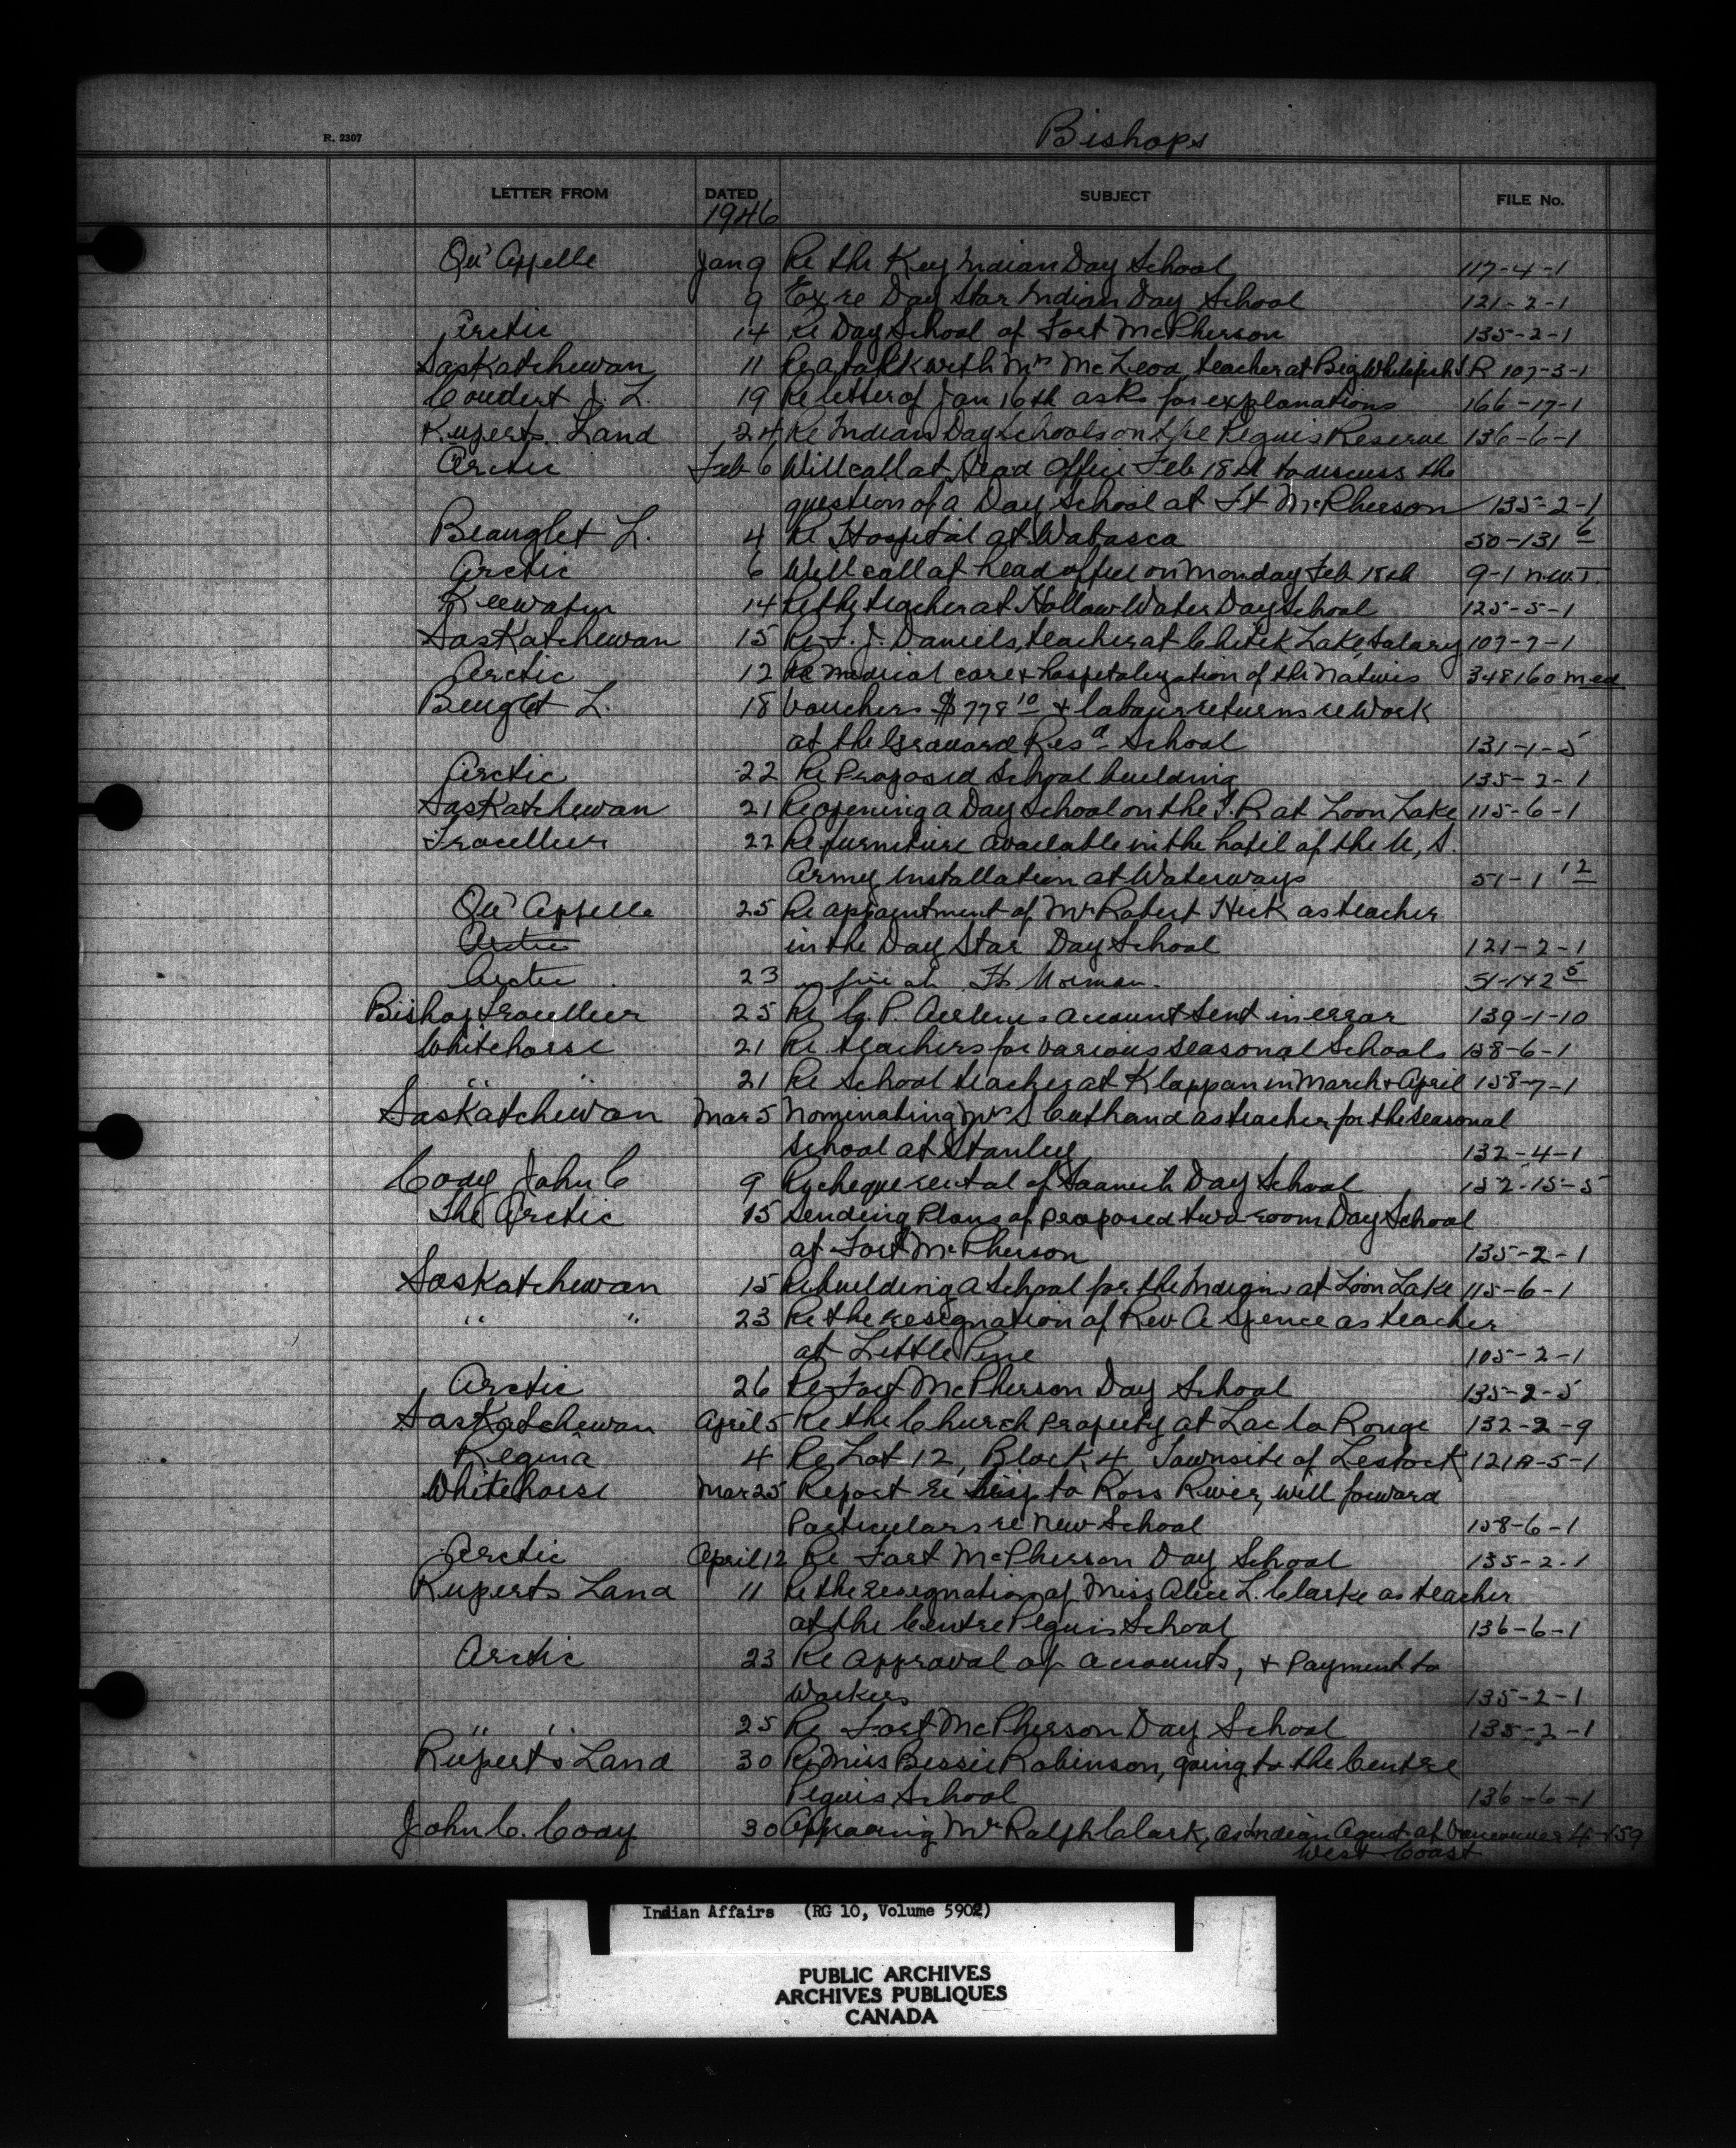 Bishops
R. 2307
LETTER FROM DATED SUBJECT FILE No.
1946
Qu'Appelle Jan 9 Re the Key Indian Day School 117-4-1
9 re Day Star Indian Day School 121-2-1
Arctic 14 Re Day School of Fort McPherson 135-2-1
Saskatchewan 11 Re a talk with Mrs McLeod, teacher at Big Whitefish I.R 107-3-1
Coudert J. L. 19 Re letter of Jan 16th asks for explanations 166-17-1
Ruperts Land 24 Re Indian Day Schools on the Peguis Reserve 136-6-1
Arctic Feb 6 Will call at Head Office Feb 18th to discuss the
question of a Day School at Ft McPherson 135-2-1
L. 4 Re Hospital at Wabasca 50-131 6
Arctic 6 Will call at head office on Monday Feb 18th 9-1 N.W.T.
Keewatin 14 Re the teacher at Hollow Water Day School 125-5-1
Saskatchewan 15 Re J. Daniels, teacher at Chitek Lake, Salary 107-7-1
Arctic 12 Re medical care & hospitalization of the natives 348160 med
L. 18 Vouchers $778 10 & labour returns re work
at the Grouard Resd School 131-1-5
Arctic 22 Re Proposed School building 135-2-1
Saskatchewan 21 Re opening a Day School on the I.R at Loon Lake 115-6-1
Trocellier 22 Re furniture available in the hotel of the U, S.
Army Installation at Waterways 51-1 12
Qu'Appelle 25 Re appointment of Mr Robert Heck as teacher
Arctic in the Day Star Day School 121-2-1
Arctic 23 Ft Norman. 51-142 5
Bishop Trocellier 25 Re C. P. Airlines account sent in error 139-1-10
Whitehorse 21 Re teachers for various seasonal Schools 158-6-1
" " 21 Re School teacher at Klappan in March & April 158-7-1
Saskatchewan Mar 5 Nominating Mr S Cuthand as teacher for the seasonal
School at Stanley 132-4-1
Cody John C 9 Re cheque rental of Saanich Day School 152-15-5
The Arctic 15 Sending Plans of proposed two-room Day School
at Fort McPherson 135-2-1
Saskatchewan 15 Re building a School for the Indians at Loon Lake 115-6-1
" " 23 Re the resignation of Rev A Spence as teacher
at Little Pine 105-2-1
Arctic 26 Re Fort McPherson Day School 135-2-5
Saskatchewan April 5 Re the Church property at Lac la Ronge 132-2-9
Regina 4 Re Lot 12, Block 4 Townsite of Lestock 121A-5-1
Whitehorse Mar 25 Report re trip to Ross River, will forward
Particulars re new School 158-6-1
Arctic April 12 Re Fort McPherson Day School 135-2-1
Ruperts Land 11 Re the resignation of Miss Alice L. Clarke as teacher
at the Centre Peguis School 136-6-1
Arctic 23 Re approval of accounts, & payment to
workers 135-2-1
" " 25 Re Fort McPherson Day School 135-2-1
Rupert's Land 30 Re Miss Bessie Robinson, going to the Centre
Peguis School 136-6-1
John C. Cody 30 Mr Ralph Clark, as Indian Agent at Vancouver
West Coast
Indian Affairs (RG 10, Volume 5902)
PUBLIC ARCHIVES
ARCHIVES PUBLIQUES
CANADA